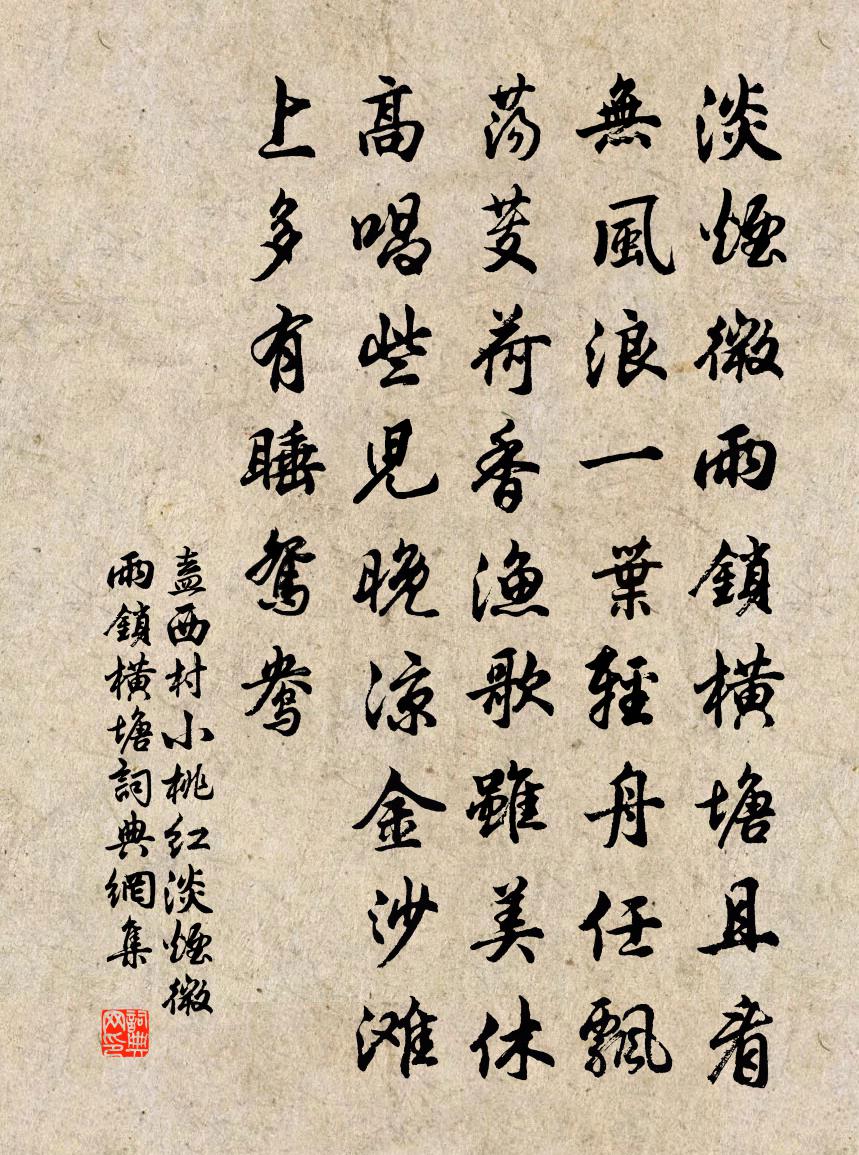 淡煙微雨鎖橫塘且看
無風浪一葉輕舟任飄
蕩芰荷香漁歌雖美休
高唱些兒晚涼金沙滩
上多有睡鴛鴦
盍西村小桃红淡煙微
雨鎖橫塘詞典網集
詞典
网印